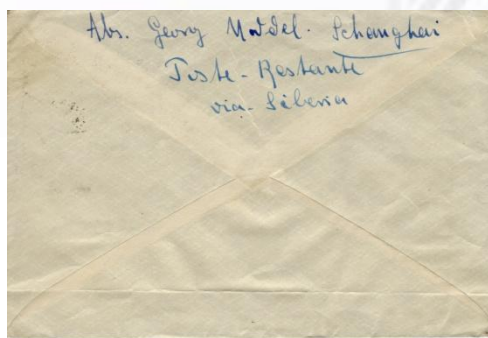 Abs. Georg Schanghai
Poste-Restante
via-Siberia